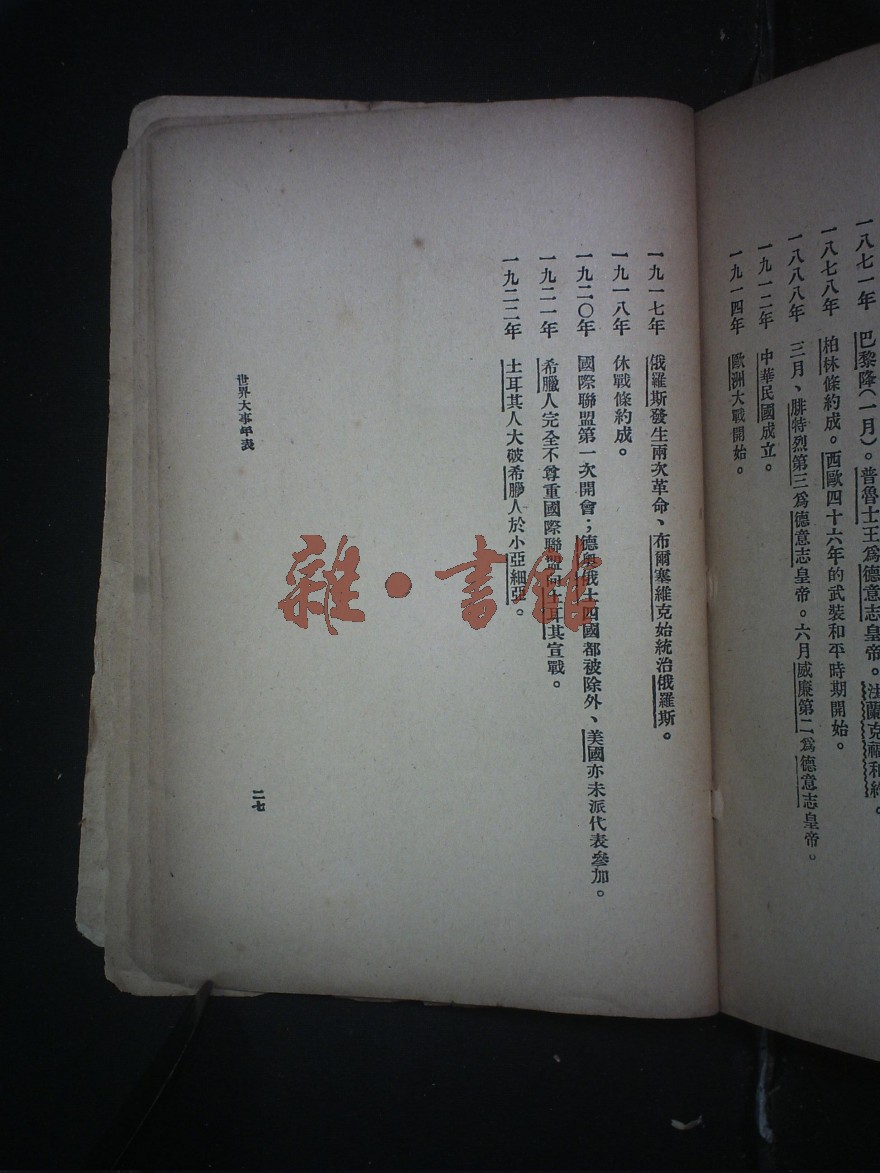 一八七一年 巴黎降(一月)。普魯士王爲德意志皇帝。法蘭克福和約。
一八七八年 柏林條約成。西歐四十六年的武裝和平時期開始。
一八八八年 三月、腓特烈第三爲德意志皇帝。六月威廉第二爲德意志皇帝。
一九一二年 中華民國成立。
一九一四年 歐洲大戰開始。
一九一七年 俄羅斯發生兩次革命、布爾塞維克始統治俄羅斯。
一九一八年 休戰條約成。
一九二〇年 國際聯盟第一次開會；德奧俄土四國都被除外、美國亦未派代表參加。
一九二一年 希臘人完全不尊重國際聯盟向土耳其宣戰。
一九二二年 土耳其人大破希臘人於小亞細亞。
世界大事年表
二七
雜·書館